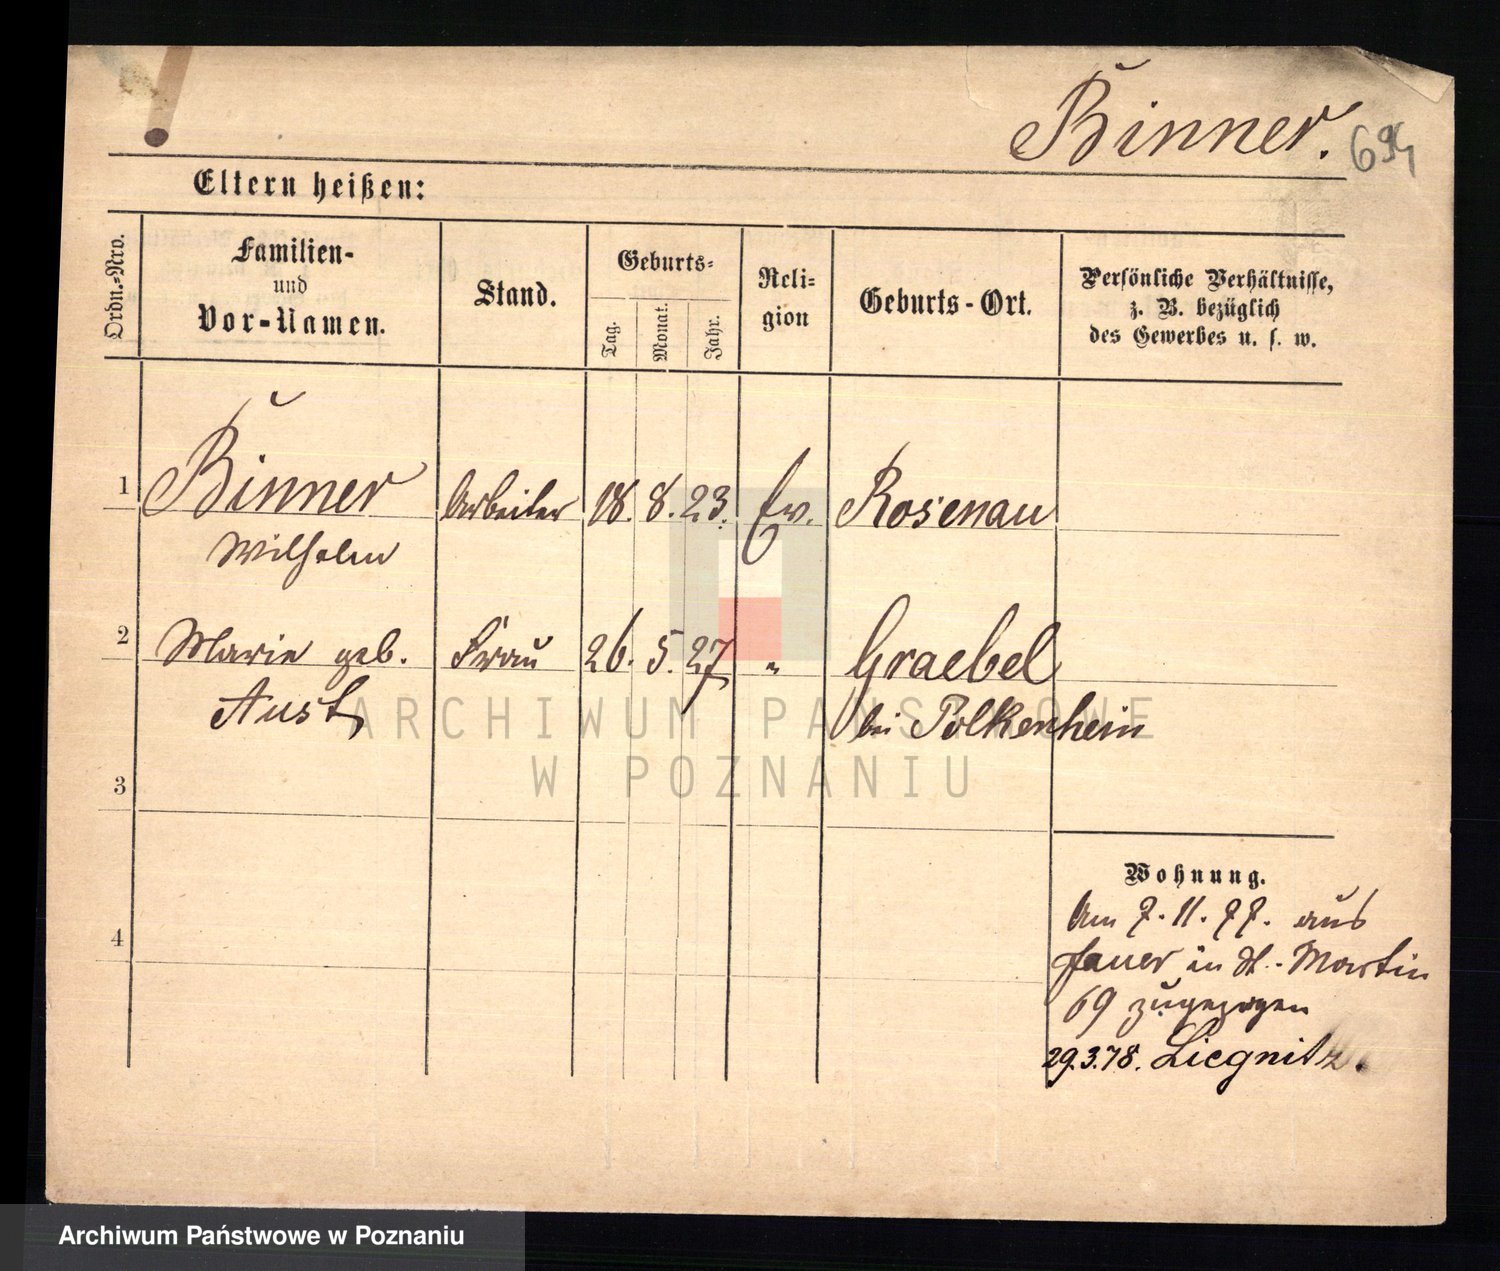 Binner. 694
Eltern heißen:
Ordn.-Nro.
Familien-
und
Vor-Namen.
Stand.
Geburts-
Tag.
Monat.
Jahr.
Reli-
gion
Geburts-Ort.
Persönliche Verhältnisse,
z. B. bezüglich
des Gewerbes u. s. w.
1 Binner Arbeiter 18. 8. 23. Ev. Rosenau
Wilhelm
2 Marie geb. Frau 26. 5. 27 " Graebel
Aust bei Polkenhein
3
4
Wohnung.
Am 7. 11. 77. aus
Jauer in St. Martin
69 zugezogen
29.3.78. Liegnitz.
ARCHIWUM PAŃSTWOWE
W POZNANIU
Archiwum Państwowe w Poznaniu